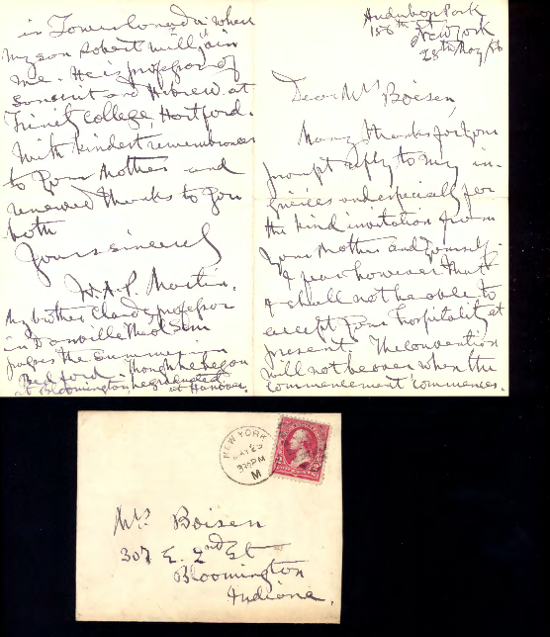 Audubon Park
156th St
New York
28th May/96
Dear Mrs Boisen,
Many thanks for your
prompt reply to my in-
quiries and especially for
the kind invitation from
your Mother and yourself.
I fear however that
I shall not be able to
accept your hospitality at
present. The convention
will not be over when the
commencement commences.
in when
my son Robert will join
me. He is professor of
Sanscrit and Hebrew at
Trinity College, Hartford.
With kindest remembrances
to your Mother and
renewed thanks to you
both
Yours sincerely
W. A. P. Martin.
My brother Claude professor
in Danville Theol Sem
passes the Summer
Bedford. Though he began
at Bloomington, he graduated
at Hanover.
NEW YORK
MAY 29
PM
M
Mrs Boisen
307 E. 2nd St
Bloomington
Indiana.